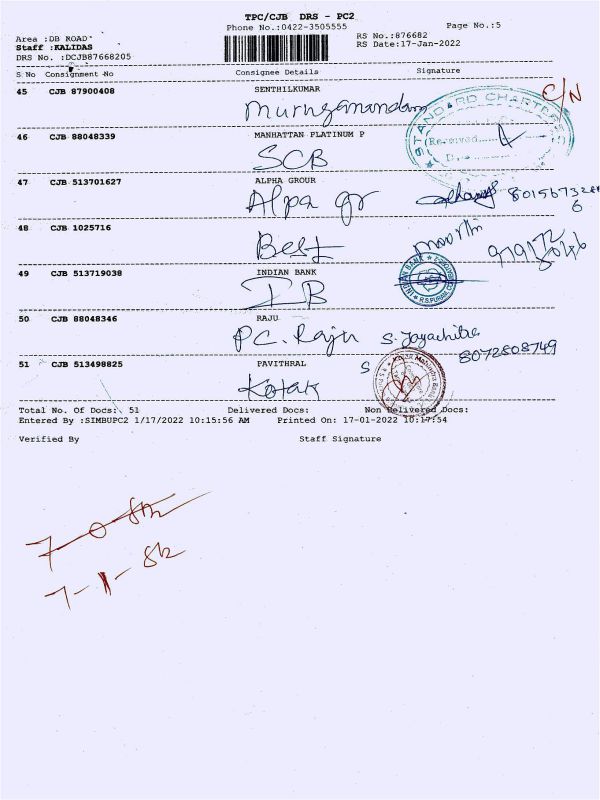 TPC/CJB DRS - PC2
Phone No.:0422-3505555 Page No.:5
Area :DB ROAD RS No.:876682
Staff :KALIDAS RS Date:17-Jan-2022
DRS No. :DCJB87668205
S No Consignment No Consignee Details Signature
45 CJB 87900408 SENTHILKUMAR C/N
Muruganandam
STANDARD CHARTERED
Received
46 CJB 88048339 MANHATTAN PLATINUM P
SCB
47 CJB 513701627 ALPHA GROUP
Alpa gr
48 CJB 1025716
Best
49 CJB 513719038 INDIAN BANK
IB
INDIAN BANK
R.S.PURAM
50 CJB 88048346 RAJU
PC. Raju S. Jayachitra
8072808749
51 CJB 513498825 PAVITHRAL
Kotak
Kotak Mahindra Bank
Total No. Of Docs: 51 Delivered Docs: Non Delivered Docs:
Entered By :SIMBUPC2 1/17/2022 10:15:56 AM Printed On: 17-01-2022 10:17:54
Verified By Staff Signature